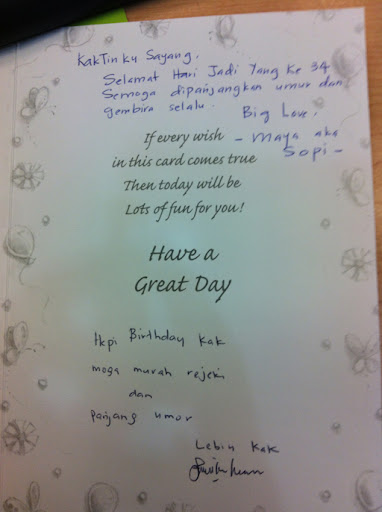 KakTinku Sayang,
Selamat Hari Jadi Yang Ke 34
Semoga dipanjangkan umur dan
gembira selalu.
Big Love,
- Maya aka
Sopi -
If every wish
in this card comes true
Then today will be
Lots of fun for you!
Have a
Great Day
Hepi Birthday kak
moga murah rejeki
dan
panjang umor
Lebiu kak